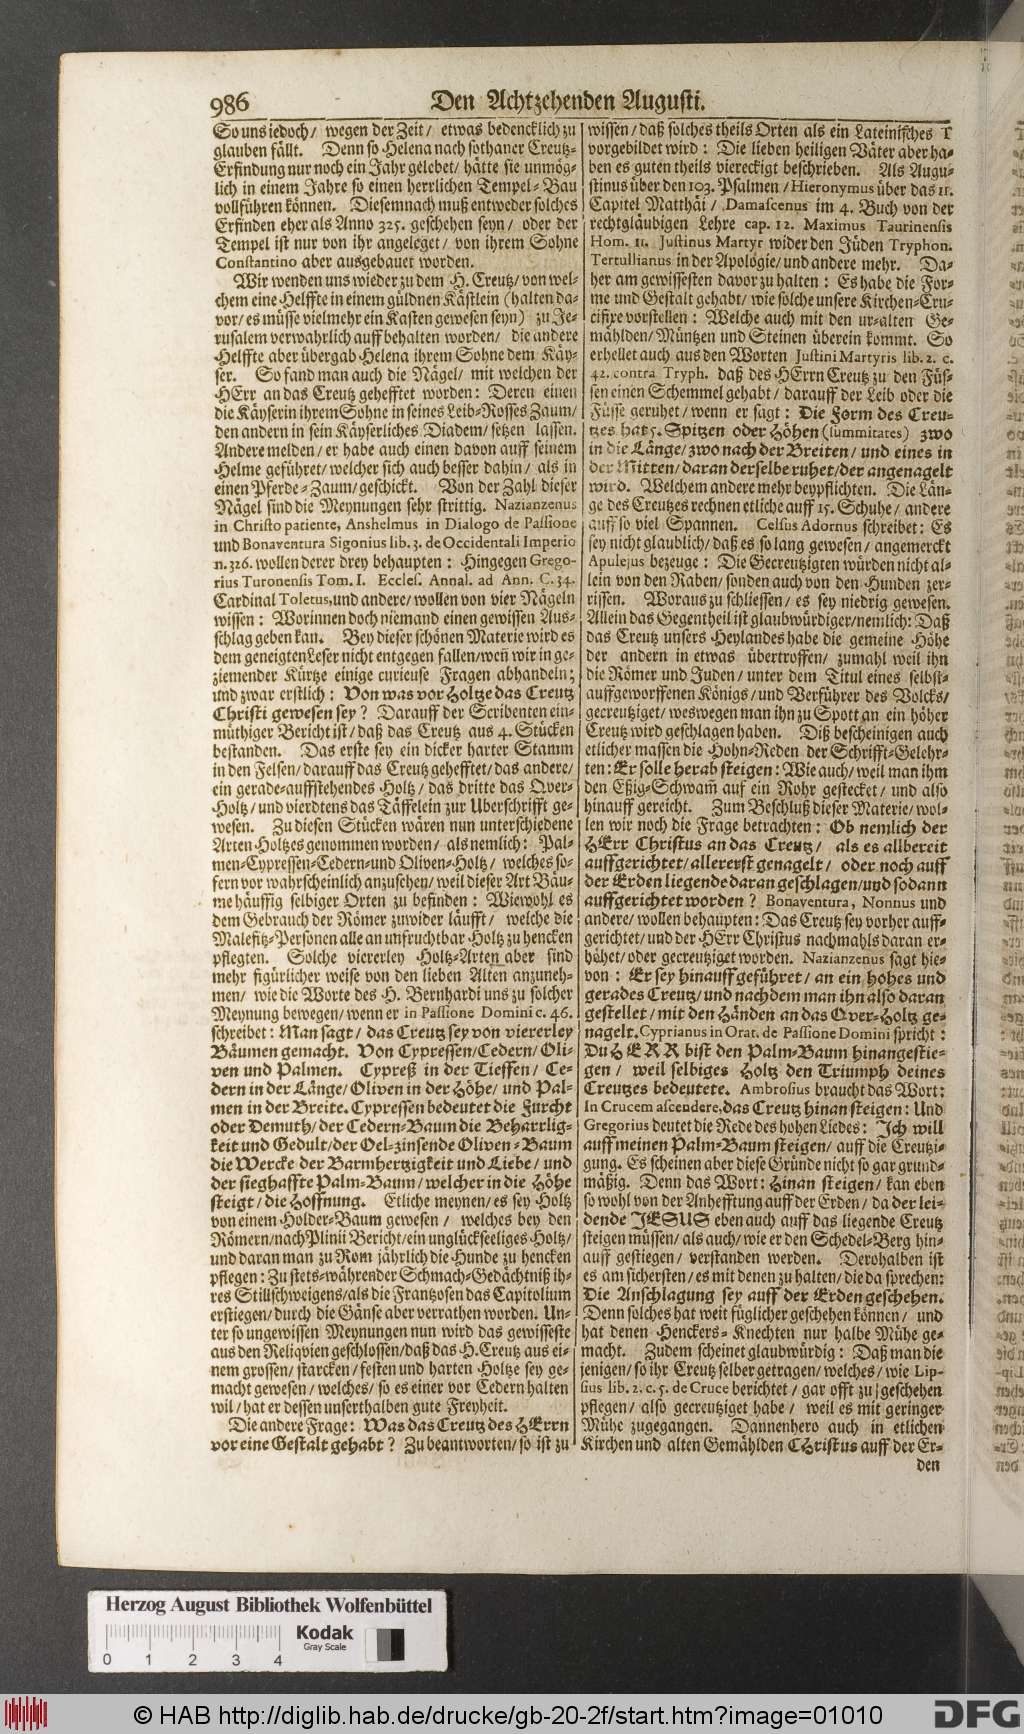 986
Den Achtzehenden Augusti.
So uns iedoch/ wegen der Zeit/ etwas bedencklich zu
glauben fällt. Denn so Helena nach sothaner Creutz-
Erfindung nur noch ein Jahr gelebet/ hätte sie unmög-
lich in einem Jahre so einen herrlichen Tempel-Bau
vollführen können. Diesemnach muß entweder solches
Erfinden eher als Anno 325. geschehen seyn/ oder der
Tempel ist nur von ihr angeleget/ von ihrem Sohne
Constantino aber ausgebauet worden.
Wir wenden uns wieder zu dem H. Creutz/ von wel-
chem eine Helffte in einem güldnen Kästlein (halten da-
vor/ es müsse vielmehr ein Kasten gewesen seyn) zu Je-
rusalem verwahrlich auff behalten worden/ die andere
Helffte aber übergab Helena ihrem Sohne dem Käy-
ser. So fand man auch die Nägel/ mit welchen der
HErr an das Creutz gehefftet worden: Deren einen
die Käyserin ihrem Sohne in seines Leib-Rosses Zaum/
den andern in sein Käyserliches Diadem/ setzen lassen.
Andere melden/ er habe auch einen davon auff seinem
Helme geführet/ welcher sich auch besser dahin/ als in
einen Pferde-Zaum/ geschickt. Von der Zahl dieser
Nägel sind die Meynungen sehr strittig. Nazianzenus
in Christo patiente, Anshelmus in Dialogo de Passione
und Bonaventura Sigonius lib. 3. de Occidentali Imperio
n. 326. wollen derer drey behaupten: Hingegen Grego-
rius Turonensis Tom. I. Eccles. Annal. ad Ann. C. 34.
Cardinal Toletus, und andere/ wollen von vier Nägeln
wissen: Worinnen doch niemand einen gewissen Aus-
schlag geben kan. Bey dieser schönen Materie wird es
dem geneigten Leser nicht entgegen fallen/ weñ wir in ge-
ziemender Kürtze einige curieuse Fragen abhandeln;
und zwar erstlich: Von was vor Holtze das Creutz
Christi gewesen sey? Darauff der Scribenten ein-
müthiger Bericht ist/ daß das Creutz aus 4. Stücken
bestanden. Das erste sey ein dicker harter Stamm
in den Felsen/ darauff das Creutz gehefftet/ das andere/
ein gerade-auffstehendes Holtz/ das dritte das Qver-
Holtz/ und vierdtens das Täffelein zur Uberschrifft ge-
wesen. Zu diesen Stücken wären nun unterschiedene
Arten Holtzes genommen worden/ als nemlich: Pal-
men-Cypressen-Cedern-und Oliven-Holtz/ welches so-
fern vor wahrscheinlich anzusehen/ weil dieser Art Bäu-
me häuffig selbiger Orten zu befinden: Wiewohl es
dem Gebrauch der Römer zuwider läufft/ welche die
Malefitz-Personen alle an unfruchtbar Holtz zu hencken
pflegten. Solche viererley Holtz-Arten aber sind
mehr figürlicher weise von den lieben Alten anzuneh-
men/ wie die Worte des H. Bernhardi uns zu solcher
Meynung bewegen/ wenn er in Passione Domini c. 46.
schreibet: Man sagt/ das Creutz sey von viererley
Bäumen gemacht. Von Cypressen/ Cedern/ Oli-
ven und Palmen. Cypreß in der Tieffen/ Ce-
dern in der Länge/ Oliven in der Höhe/ und Pal-
men in der Breite. Cypressen bedeutet die Furcht
oder Demuth/ der Cedern-Baum die Beharrlig-
keit und Gedult/ der Oel-zinsende Oliven-Baum
die Wercke der Barmhertzigkeit und Liebe/ und
der sieghaffte Palm-Baum/ welcher in die Höhe
steigt/ die Hoffnung. Etliche meynen/ es sey Holtz
von einem Holder-Baum gewesen/ welches bey den
Römern/ nach Plinii Bericht/ ein unglückseeliges Holtz/
und daran man zu Rom jährlich die Hunde zu hencken
pflegen: Zu stets-währender Schmach-Gedächtniß ih-
res Stillschweigens/ als die Frantzosen das Capitolium
erstiegen/ durch die Gänse aber verrathen worden. Un-
ter so ungewissen Meynungen nun wird das gewisseste
aus den Reliqvien geschlossen/ daß das H. Creutz aus ei-
nem grossen/ starcken/ festen und harten Holtze sey ge-
macht gewesen/ welches/ so es einer vor Cedern halten
wil/ hat er dessen unserthalben gute Freyheit.
Die andere Frage: Was das Creutz des HErrn
vor eine Gestalt gehabt? Zu beantworten/ so ist zu
wissen/ daß solches theils Orten als ein Lateinisches T
vorgebildet wird: Die lieben heiligen Väter aber ha-
ben es guten theils viereckigt beschrieben. Als Augu-
stinus über den 103. Psalmen/ Hieronymus über das 11.
Capitel Matthäi/ Damascenus im 4. Buch von der
rechtgläubigen Lehre cap. 12. Maximus Taurinensis
Hom. 11. Justinus Martyr wider den Jüden Tryphon.
Tertullianus in der Apologie/ und andere mehr. Da-
her am gewissesten davor zu halten: Es habe die For-
me und Gestalt gehabt/ wie solche unsere Kirchen-Cru-
cifixe vorstellen: Welche auch mit den ur-alten Ge-
mählden/ Müntzen und Steinen überein kommt. So
erhellet auch aus den Worten Justini Martyris lib. 2. c.
42. contra Tryph. daß des HErrn Creutz zu den Füs-
sen einen Schemmel gehabt/ darauff der Leib oder die
Füsse geruhet/ wenn er sagt: Die Form des Creu-
tzes hat 5. Spitzen oder Höhen (summitates) zwo
in die Länge/ zwo nach der Breiten/ und eines in
der Mitten/ daran derselbe ruhet/ der angenagelt
wird. Welchem andere mehr beypflichten. Die Län-
ge des Creutzes rechnen etliche auff 15. Schuhe/ andere
auff so viel Spannen. Celsus Adornus schreibet: Es
sey nicht glaublich/ daß es so lang gewesen/ angemerckt
Apulejus bezeuge: Die Gecreutzigten würden nicht al-
lein von den Raben/ sonden auch von den Hunden zer-
rissen. Woraus zu schliessen/ es sey niedrig gewesen.
Allein das Gegentheil ist glaubwürdiger/ nemlich: Daß
das Creutz unsers Heylandes habe die gemeine Höhe
der andern in etwas übertroffen/ zumahl weil ihn
die Römer und Juden/ unter dem Titul eines selbst-
auffgeworffenen Königs/ und Verführer des Volcks/
gecreutziget/ weswegen man ihn zu Spott an ein höher
Creutz wird geschlagen haben. Diß bescheinigen auch
etlicher massen die Hohn-Reden der Schrifft-Gelehr-
ten: Er solle herab steigen: Wie auch/ weil man ihm
den Eßig-Schwam̃ auf ein Rohr gestecket/ und also
hinauff gereicht. Zum Beschluß dieser Materie/ wol-
len wir noch die Frage betrachten: Ob nemlich der
HErr Christus an das Creutz/ als es allbereit
auffgerichtet/ allererst genagelt/ oder noch auff
der Erden liegende daran geschlagen/ und sodann
auffgerichtet worden? Bonaventura, Nonnus und
andere/ wollen behaupten: Das Creutz sey vorher auff-
gerichtet/ und der HErr Christus nachmahls daran er-
höhet/ oder gecreutziget worden. Nazianzenus sagt hie-
von: Er sey hinauff geführet/ an ein hohes und
gerades Creutz/ und nachdem man ihn also daran
gestellet/ mit den Händen an das Qver-Holtz ge-
nagelt. Cyprianus in Orat. de Passione Domini spricht:
Du HERR bist den Palm-Baum hinangestie-
gen/ weil selbiges Holtz den Triumph deines
Creutzes bedeutete. Ambrosius braucht das Wort:
In Crucem ascendere, das Creutz hinan steigen: Und
Gregorius deutet die Rede des hohen Liedes: Ich will
auff meinen Palm-Baum steigen/ auff die Creutzi-
gung. Es scheinen aber diese Gründe nicht so gar grund-
mäßig. Denn das Wort: Hinan steigen/ kan eben
so wohl von der Anhefftung auff der Erden/ da der lei-
dende JESUS eben auch auff das liegende Creutz
steigen müssen/ als auch/ wie er den Schedel-Berg hin-
auff gestiegen/ verstanden werden. Derohalben ist
es am sichersten/ es mit denen zu halten/ die da sprechen:
Die Anschlagung sey auff der Erden geschehen.
Denn solches hat weit füglicher geschehen können/ und
hat denen Henckers-Knechten nur halbe Mühe ge-
macht. Zudem scheinet glaubwürdig: Daß man die
ienigen/ so ihr Creutz selber getragen/ welches/ wie Lip-
sius lib. 2. c. 5. de Cruce berichtet/ gar offt zu geschehen
pflegen/ also gecreutziget habe/ weil es mit geringer
Mühe zugegangen. Dannenhero auch in etlichen
Kirchen und alten Gemählden Christus auff der Er-
den
Herzog August Bibliothek Wolfenbüttel
0 1 2 3 4
Kodak
Gray Scale
© HAB http://diglib.hab.de/drucke/gb-20-2f/start.htm?image=01010
DFG